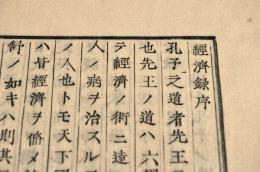 經濟錄序
孔子之道者先王ノ
也先王ノ道ハ六經
テ經濟ノ術ニ達
人ノ病ヲ治スル
ノ人也トモ天下國
ハ皆經濟ヲ脩メ
舒ノ如キハ則其